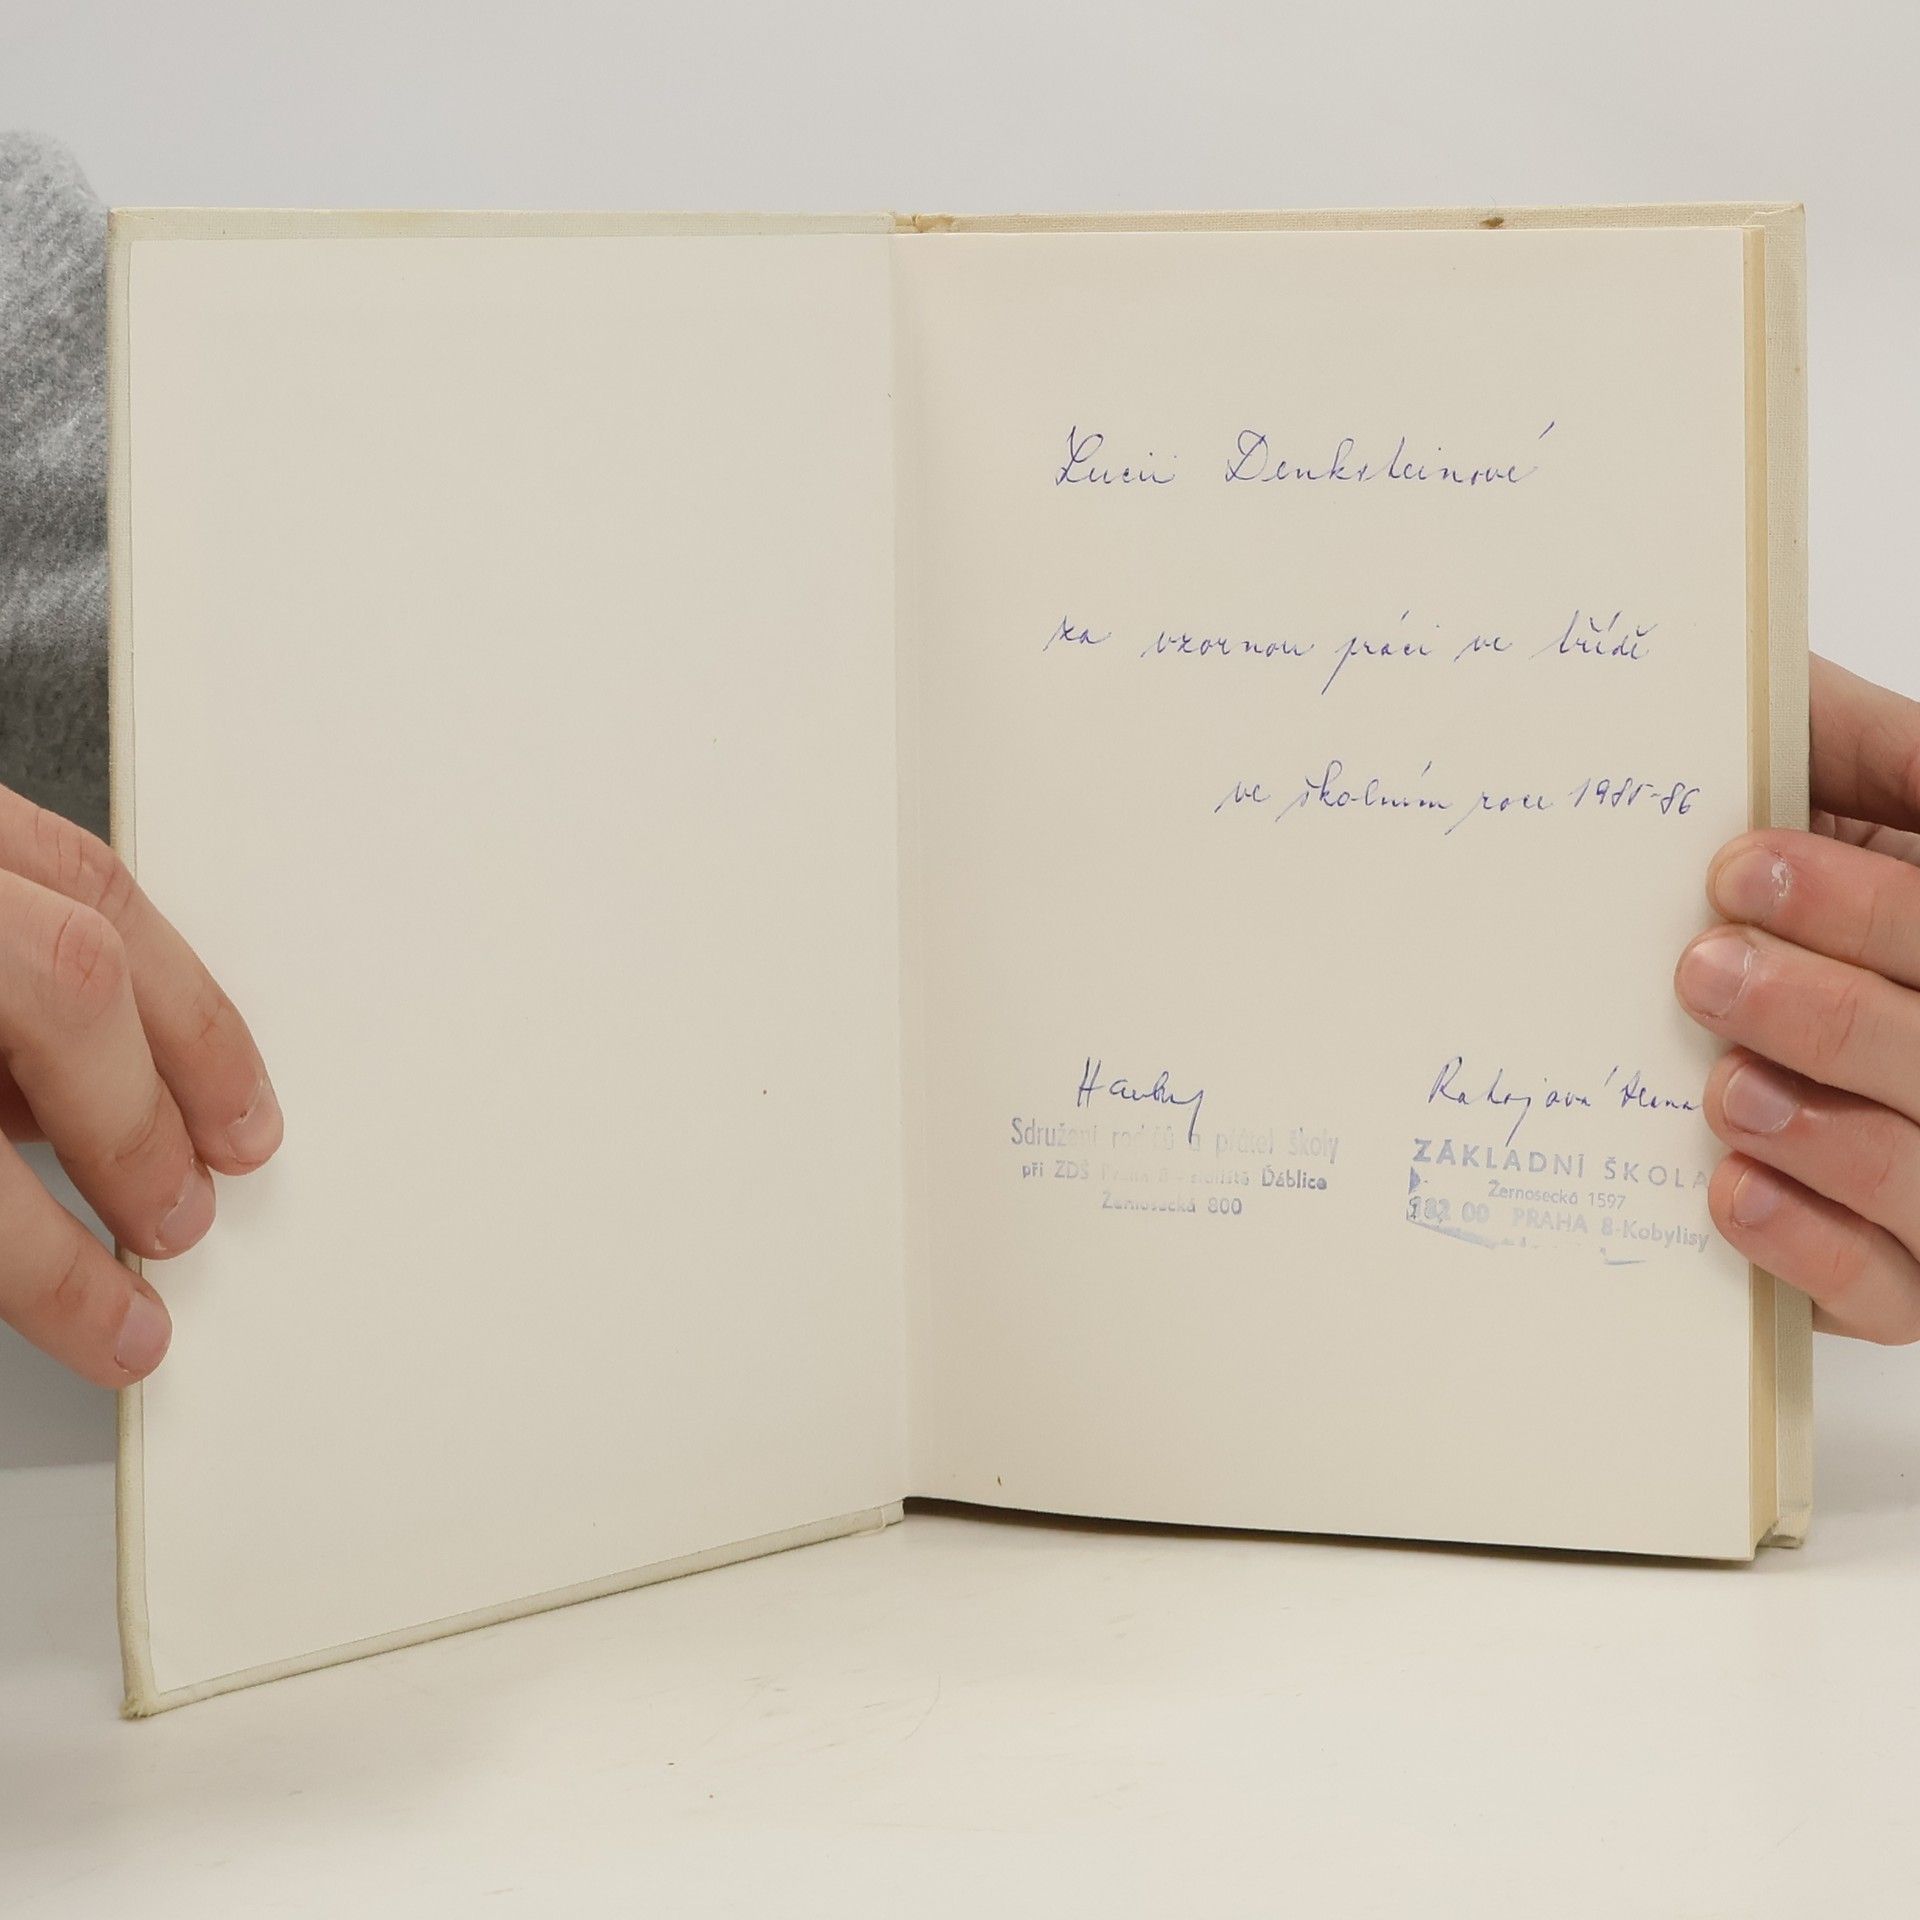 Lucii Denksteinové
za vzornou práci ve třídě
ve školním roce 1985-86
Sdružení rodičů a přátel školy
při ZDŠ Praha 8 - sídliště Ďáblice
Žernosecká 800
ZÁKLADNÍ ŠKOLA
Žernosecká 1597
182 00 PRAHA 8-Kobylisy